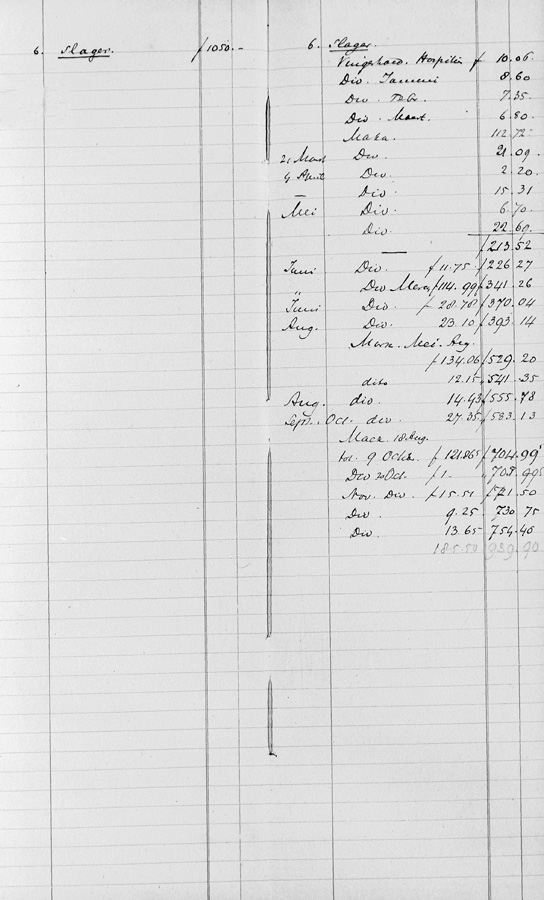 6. Slager. f 1050.-
6. Slager.
Hospitin f 10.06.
Div. Januari 8.60
Div. Febr. 7.35.
Div. Maart. 6.80
112.72
21 Maart Div. 21.09.
9 April Div. 2.20
— Div. 15.31
Mei Div. 6.70.
Div. 22.69.
— f 213.52
Juni Div. f 11.75. f 226.27
" Div f 114.99 f 341.26
Juni Div. f 28.78 f 370.04
Aug. Div. 23.10 f 393.14
Mei. Aug.
f 134.06 f 529.20
dito 12.15 541.35
Aug. div. 14.43 f 555.78
Sept. Oct. div. 27.35 f 583.13
18 Aug.
tot. 9 Octr. f 121.865 f 704.995
Div 20 Oct. f 1.
Nov. Div. f 15.51
Div 9.25 730.75
Div 13.65 754.40
185.50 939.90